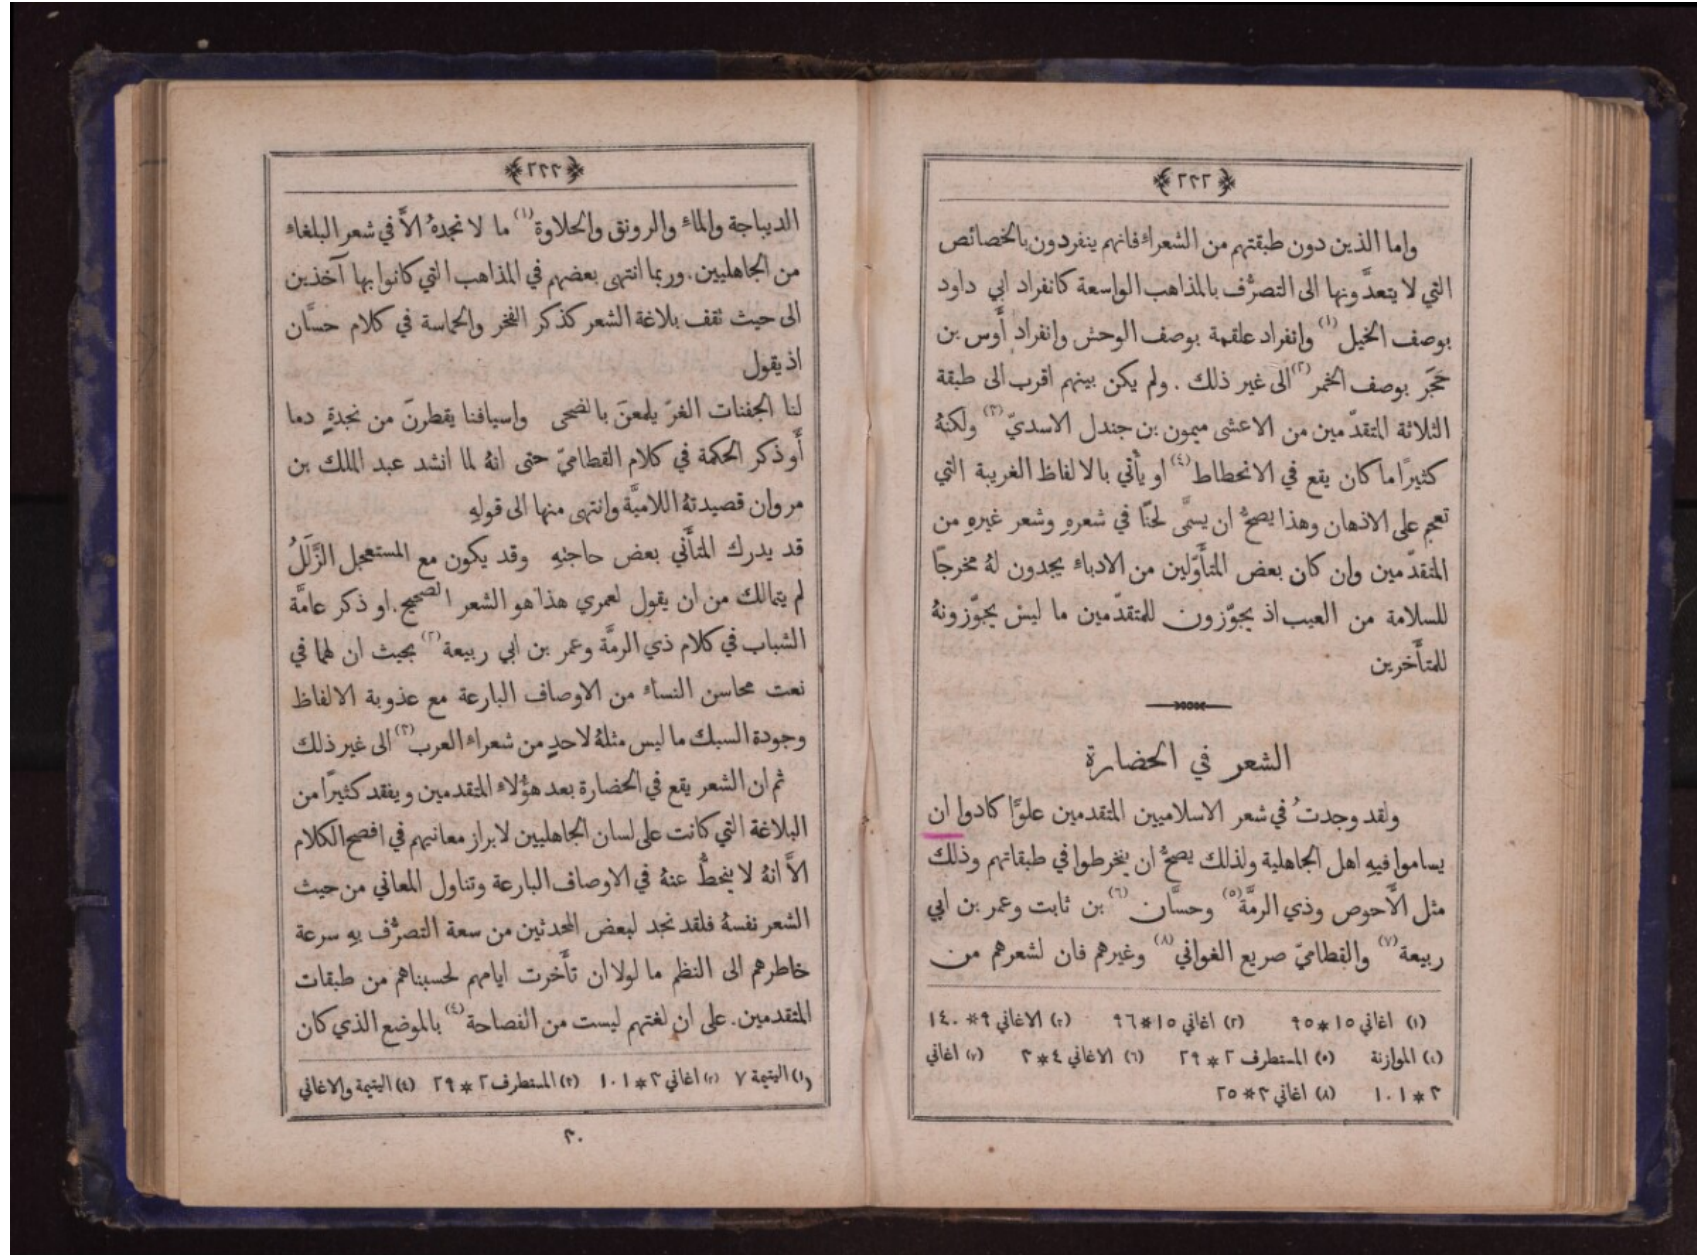 ﴿٢٣٢﴾
واما الذين دون طبقتهم من الشعراء فانهم ينفردون بالخصائص
التي لا يتعدَّونها الى التصرُّف بالمذاهب الواسعة كانفراد ابي داود
بوصف الخيل (١) وانفراد علقمة بوصف الوحش وانفراد أَوس بن
حَجَر بوصف الخمر (٢) الى غير ذلك . ولم يكن بينهم اقرب الى طبقة
الثلاثة المتقدّمين من الاعشى ميمون بن جندل الاسديّ (٣) ولكنهُ
كثيرًا ما كان يقع في الانحطاط (٤) او يأتي بالالفاظ الغريبة التي
تعجم على الاذهان وهذا يصحُّ ان يسمَّى لحنًا في شعرهِ وشعر غيرهِ من
المتقدّمين وان كان بعض المتأَوّلين من الادباء يجدون لهُ مخرجًا
للسلامة من العيب اذ يجوّزون للمتقدّمين ما ليس يجوّزونهُ
للمتأَخرين
الشعر في الحضارة
ولقد وجدتُ في شعر الاسلاميين المتقدمين علوًّا كادوا ان
يساموا فيهِ اهل الجاهلية ولذلك يصحُّ ان ينخرطوا في طبقاتهم وذلك
مثل الأَحوص وذي الرمَّة (٥) وحسَّان (٦) بن ثابت وعمر بن ابي
ربيعة (٧) والقطاميّ صريع الغواني (٨) وغيرهم فان لشعرهم من
(١) اغاني ١٥*٩٥ (٢) اغاني ١٥*٩٦ (٣) الاغاني ٩*١٤٠
(٤) الموازنة (٥) المستطرف ٢*٢٩ (٦) الاغاني ٤*٣ (٧) اغاني
٣*١٠١ (٨) اغاني ٣*٢٥
﴿٢٣٣﴾
الديباجة والماء والرونق والحلاوة (١) ما لا نجدهُ الاَّ في شعر البلغاء
من الجاهليين . وربما انتهى بعضهم في المذاهب التي كانوا بها آخذين
الى حيث تقف بلاغة الشعر كذكر الفخر والحماسة في كلام حسَّان
اذ يقول
لنا الجفنات الغرّ يلمعنَ بالضحى واسيافنا يقطرنَ من نجدةٍ دما
أَو ذكر الحكمة في كلام القطاميّ حتى انهُ لما انشد عبد الملك بن
مروان قصيدتهُ اللاميَّة وانتهى منها الى قولهِ
قد يدرك المتأَني بعض حاجتهِ وقد يكون مع المستعجل الزَّلَلُ
لم يتمالك من ان يقول لعمري هذا هو الشعر الصحيح. او ذكر عامَّة
الشباب في كلام ذي الرمَّة وعمر بن ابي ربيعة (٢) بحيث ان لهما في
نعت محاسن النساء من الاوصاف البارعة مع عذوبة الالفاظ
وجودة السبك ما ليس مثلهُ لاحدٍ من شعراء العرب (٣) الى غير ذلك
ثم ان الشعر يقع في الحضارة بعد هؤُلاء المتقدمين ويفقد كثيرًا من
البلاغة التي كانت على لسان الجاهليين لابراز معانيهم في افصح الكلام
الاَّ انهُ لا ينحطُّ عنهُ في الاوصاف البارعة وتناول المعاني من حيث
الشعر نفسهُ فلقد نجد لبعض المحدثين من سعة التصرُّف بهِ سرعة
خاطرهم الى النظم ما لولا ان تأَخرت ايامهم لحسبناهم من طبقات
المتقدمين . على ان لغتهم ليست من الفصاحة (٤) بالموضع الذي كان
(١) اليتيمة ٧ (٢) اغاني ٣*١٠١ (٣) المستطرف ٢*٢٩ (٤) اليتيمة والاغاني
٣٠